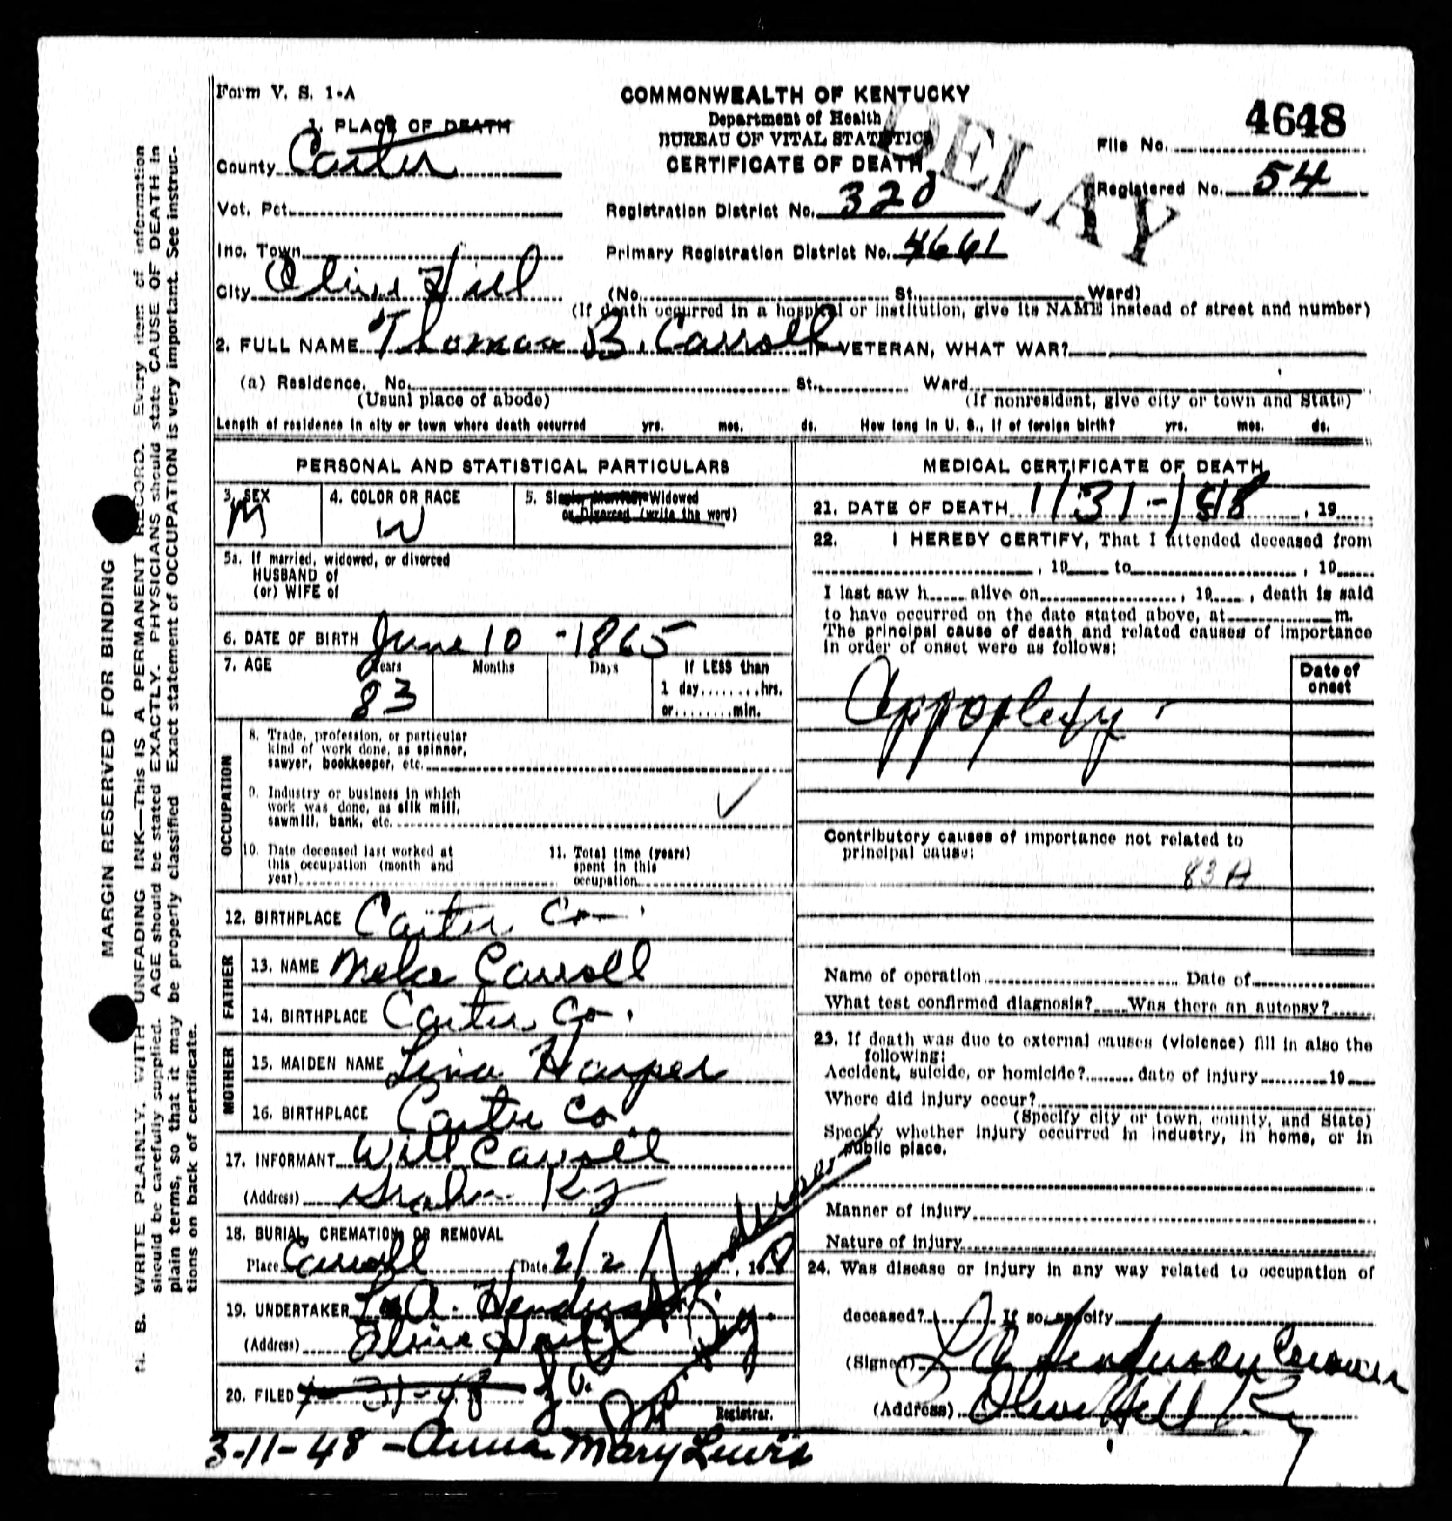 Form V. S. 1-A
COMMONWEALTH OF KENTUCKY
Department of Health
BUREAU OF VITAL STATISTICS
CERTIFICATE OF DEATH
DELAY
4648
File No.
Registered No. 54
1. PLACE OF DEATH
County Carter
Vot. Pct.
Registration District No. 320
Inc. Town
Primary Registration District No. 4661
City Olive Hill
(No. St. Ward)
(If death occurred in a hospital or institution, give its NAME instead of street and number)
2. FULL NAME Thomas B. Carroll IF VETERAN, WHAT WAR?
(a) Residence. No. St. Ward
(Usual place of abode) (If nonresident, give city or town and State)
Length of residence in city or town where death occurred yrs. mos. ds. How long in U. S., if of foreign birth? yrs. mos. ds.
PERSONAL AND STATISTICAL PARTICULARS
3. SEX M
4. COLOR OR RACE W
5. Single Married Widowed
or Divorced (write the word)
5a. If married, widowed, or divorced
HUSBAND of
(or) WIFE of
6. DATE OF BIRTH June 10 - 1865
7. AGE Years Months Days If LESS than
83 1 day........hrs.
or........min.
OCCUPATION
8. Trade, profession, or particular
kind of work done, as spinner,
sawyer, bookkeeper, etc.
9. Industry or business in which
work was done, as silk mill,
sawmill, bank, etc.
10. Date deceased last worked at
this occupation (month and
year)
11. Total time (years)
spent in this
occupation
12. BIRTHPLACE Carter Co.
FATHER
13. NAME Meke Carroll
14. BIRTHPLACE Carter Co.
MOTHER
15. MAIDEN NAME Lina Harper
16. BIRTHPLACE Carter Co.
17. INFORMANT Will Carroll
(Address) Grahn Ky
18. BURIAL, CREMATION OR REMOVAL
Place Carroll Date 2/2, 1948
19. UNDERTAKER L. A. Henderson
(Address) Olive Hill Ky.
20. FILED 1-31-48
Registrar.
3-11-48 - Anna Mary Lewis
MEDICAL CERTIFICATE OF DEATH
21. DATE OF DEATH 1/31-1948, 19
22. I HEREBY CERTIFY, That I attended deceased from
, 19 to , 19
I last saw h alive on , 19 , death is said
to have occurred on the date stated above, at m.
The principal cause of death and related causes of importance
in order of onset were as follows:
Date of
onset
Appoplexy
Contributory causes of importance not related to
principal cause:
83 A
Name of operation Date of
What test confirmed diagnosis? Was there an autopsy?
23. If death was due to external causes (violence) fill in also the
following:
Accident, suicide, or homicide? date of injury 19
Where did injury occur?
(Specify city or town, county, and State)
Specify whether injury occurred in industry, in home, or in
public place.
Manner of injury
Nature of injury
24. Was disease or injury in any way related to occupation of
deceased? If so, specify
(Signed) L A Henderson Coroner
(Address) Olive Hill Ky
MARGIN RESERVED FOR BINDING
N. B. WRITE PLAINLY, WITH UNFADING INK—THIS IS A PERMANENT RECORD. Every item of information
should be carefully supplied. AGE should be stated EXACTLY. PHYSICIANS should state CAUSE OF DEATH in
plain terms, so that it may be properly classified. Exact statement of OCCUPATION is very important. See instruc-
tions on back of certificate.